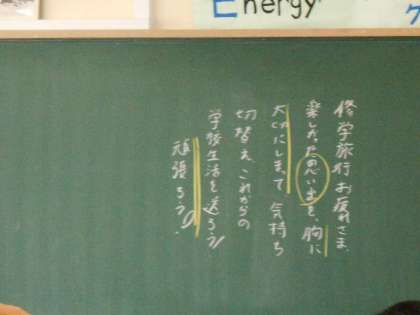 Energy
修学旅行お疲れさま、
楽しかった思い出を、胸に
大切にしまって、気持ち
切替え、これからの
学校生活を送ろう!!
頑張ろう!